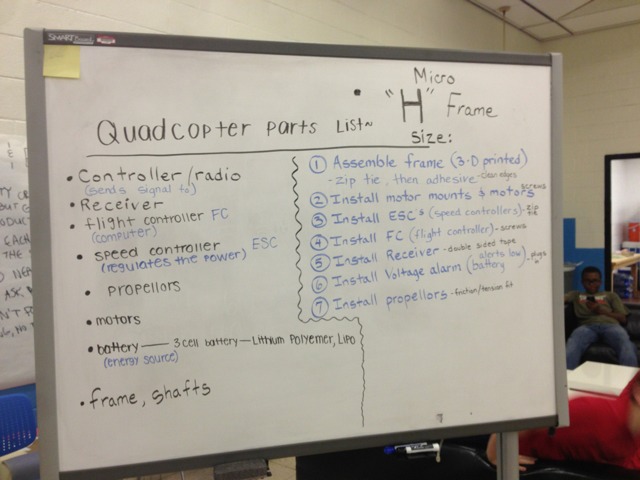 SMART Board
Quadcopter Parts List~
• Micro
"H" Frame
size:
• Controller/radio
(sends signal to)
• Receiver
• flight controller FC
(computer)
• speed controller ESC
(regulates the power)
• propellors
• motors
• battery — 3 cell battery — Lithium Polyemer, LiPo
(energy source)
• frame, shafts
① Assemble frame (3-D printed)
- zip tie, then adhesive - clean edges
② Install motor mounts & motors screws
③ Install ESC's (speed controllers) - zip tie
④ Install FC (flight controller) - screws
⑤ Install Receiver - double sided tape
⑥ Install Voltage alarm (alerts low battery) - plugs in
⑦ Install propellors - friction/tension fit